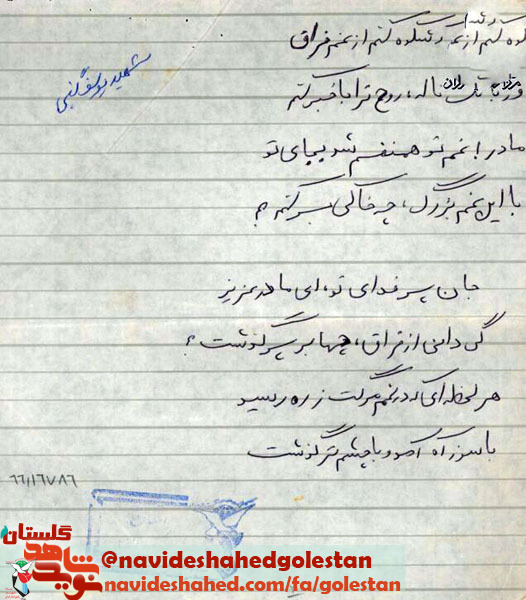 شکوه کنم از غم و شکوه کنم از غم فراق
شهید یوسف گنجی
ناله، روح ترا با خبر کنم
مادر! غم تو همنفسم شد بجای تو
با این غم بزرگ، چه خاکی بسر کنم؟
جان پسر فدای تو، ای مادر عزیز
کی دانی از فراق، چها بر سرم گذشت؟
هر لحظه‌ای که در غم مرگت ز ره رسید
با سوز آه آمد و با چشم تر گذشت
گلستان
نوید شاهد
@navideshahedgolestan
navideshahed.com/fa/golestan